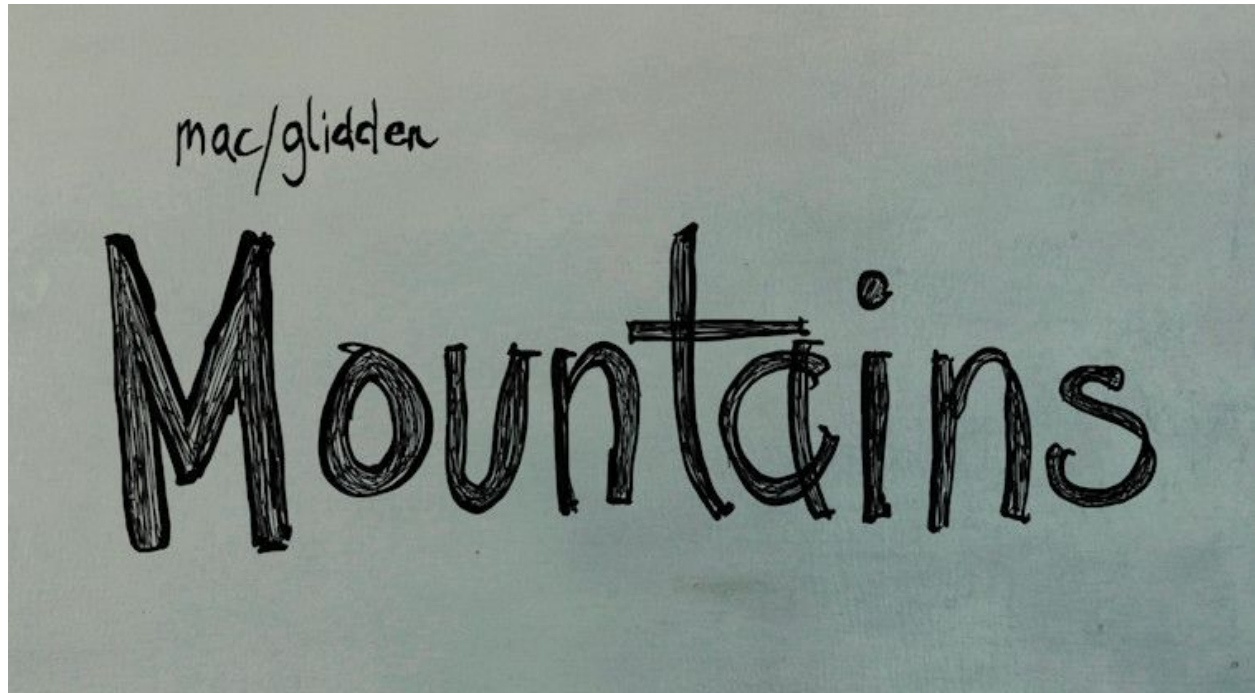 mac/glidden
Mountains